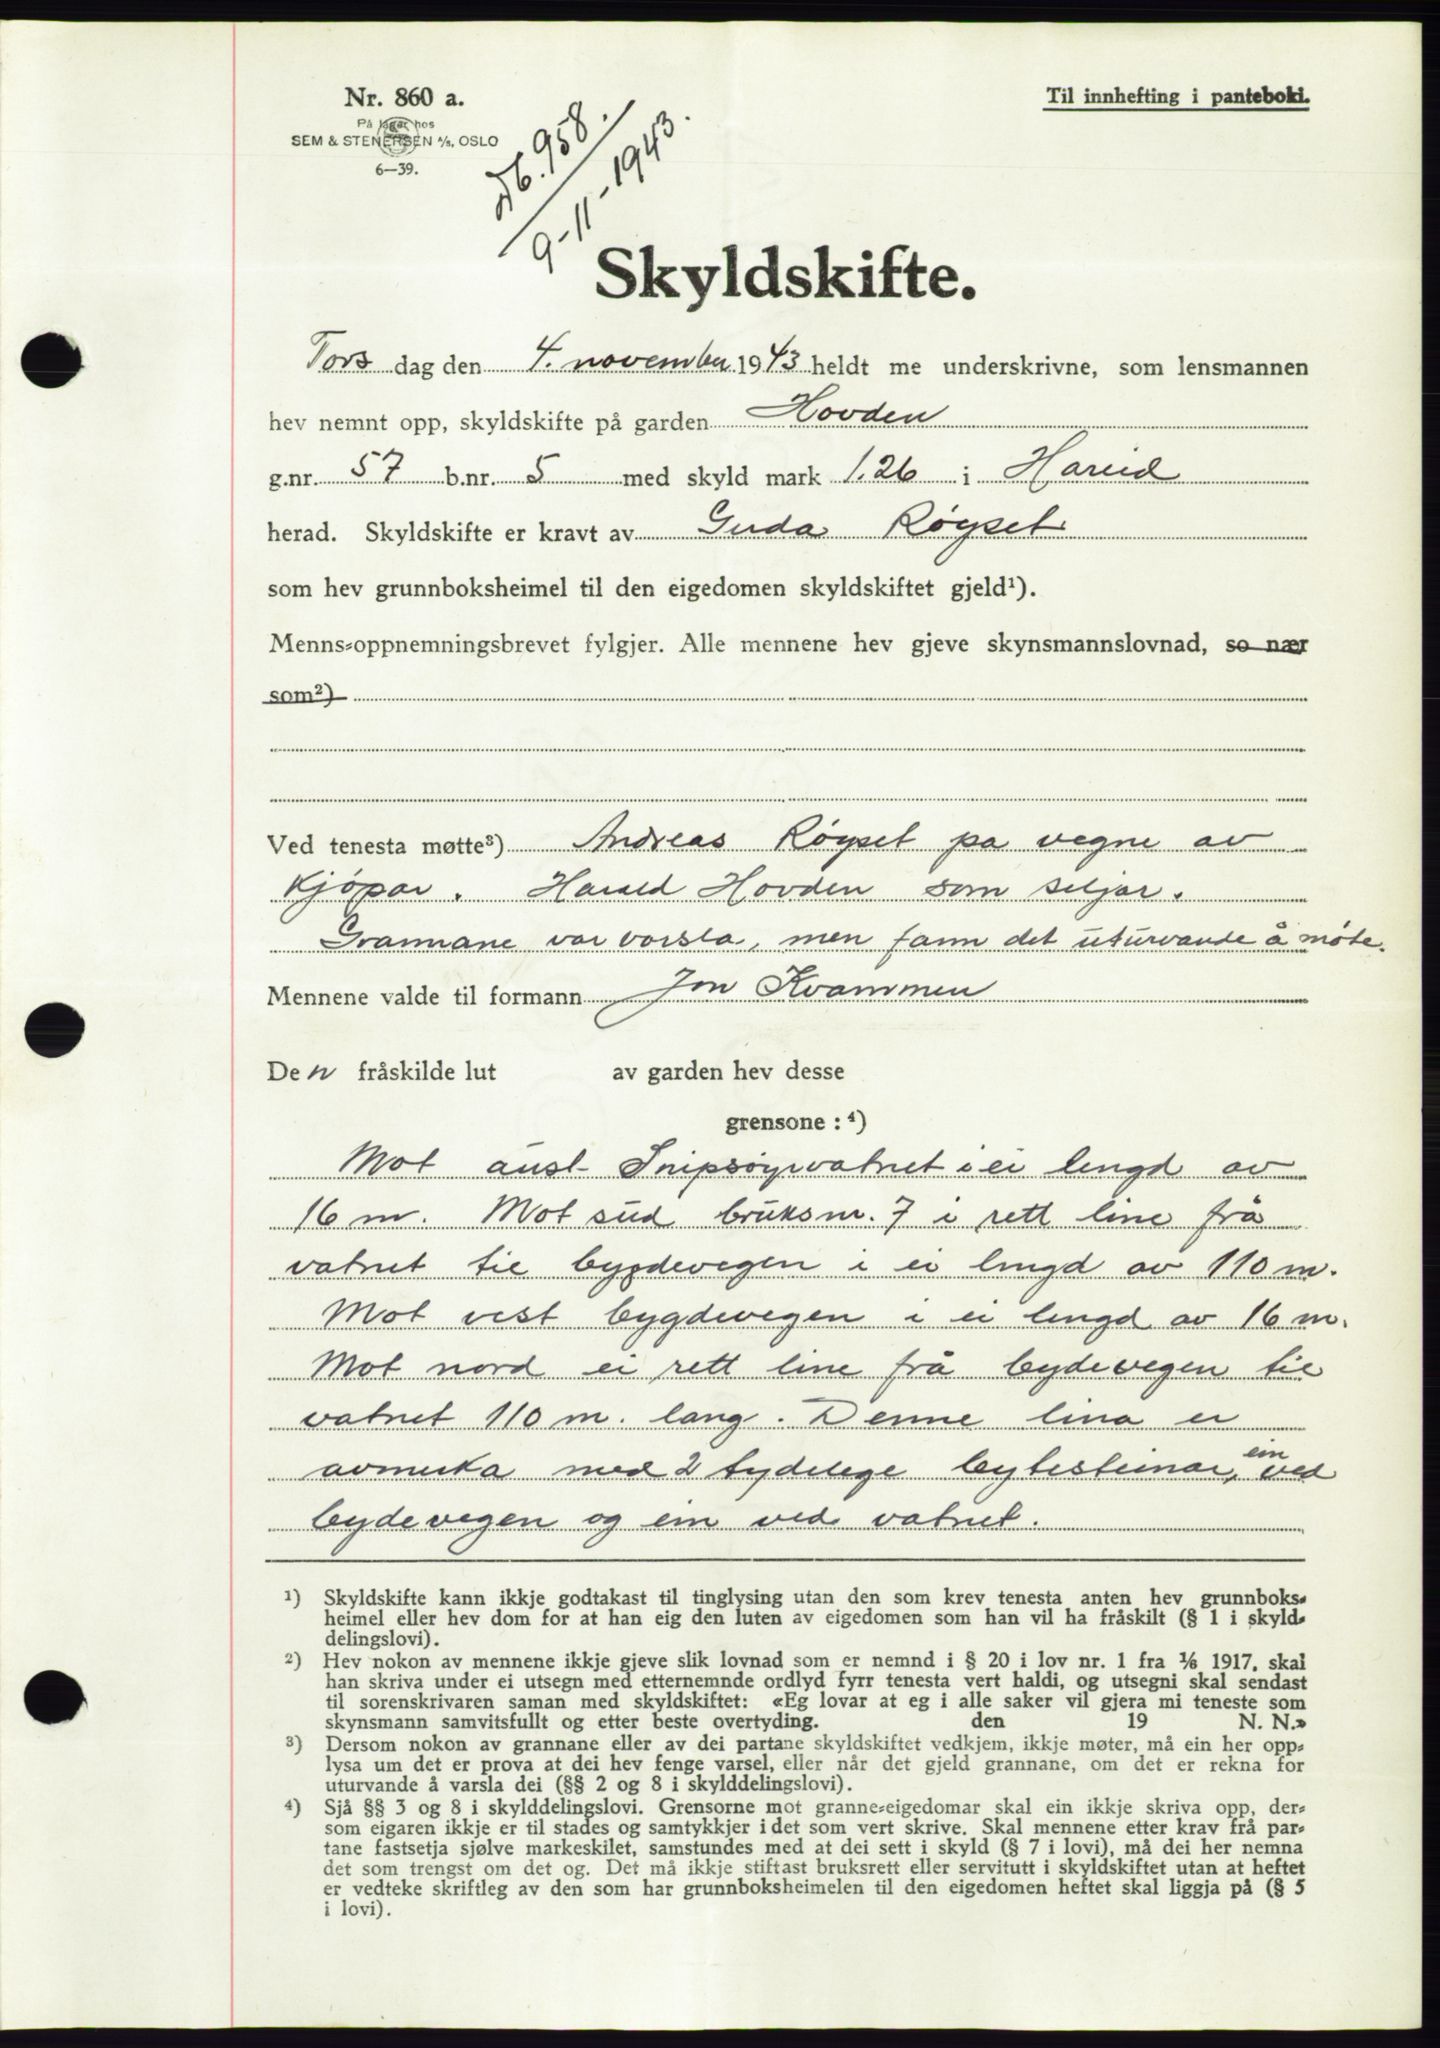 Nr. 860 a.
På lager hos
SEM & STENERSEN A/S, OSLO
6—39.
Til innhefting i panteboki.
Db. 958.
9-11-1943.
Skyldskifte.
Tors dag den 4. november 1943 heldt me underskrivne, som lensmannen
hev nemnt opp, skyldskifte på garden Hovden
g.nr. 57 b.nr. 5 med skyld mark 1.26 i Hareid
herad. Skyldskifte er kravt av Guda Røyset
som hev grunnboksheimel til den eigedomen skyldskiftet gjeld¹).
Menns-oppnemningsbrevet fylgjer. Alle mennene hev gjeve skynsmannslovnad, so nær
som²)
Ved tenesta møtte³) Andreas Røyset pa vegne av
Kjøpar. Harald Hovden som seljar.
Grannane var varsla, men fann det uturvande å møte.
Mennene valde til formann Jon Kvammen
Den fråskilde lut av garden hev desse
grensone : ⁴)
Mot aust Snipsøyrvatnet i ei lengd av
16 m. Mot sud bruksnr. 7 i rett line frå
vatnet til bygdevegen i ei lengd av 110 m.
Mot vest bygdevegen i ei lengd av 16 m.
Mot nord ei rett line frå bydevegen til
vatnet 110 m. lang. Denne lina er
avmerka med 2 tydelege bytesteinar, ein ved
bydevegen og ein ved vatnet.
¹) Skyldskifte kann ikkje godtakast til tinglysing utan den som krev tenesta anten hev grunnboks-
heimel eller hev dom for at han eig den luten av eigedomen som han vil ha fråskilt (§ 1 i skyld-
delingslovi).
²) Hev nokon av mennene ikkje gjeve slik lovnad som er nemnd i § 20 i lov nr. 1 fra ⅙ 1917, skal
han skriva under ei utsegn med etternemnde ordlyd fyrr tenesta vert haldi, og utsegni skal sendast
til sorenskrivaren saman med skyldskiftet: «Eg lovar at eg i alle saker vil gjera mi teneste som
skynsmann samvitsfullt og etter beste overtyding. den 19 N. N.»
³) Dersom nokon av grannane eller av dei partane skyldskiftet vedkjem, ikkje møter, må ein her opp-
lysa um det er prova at dei hev fenge varsel, eller når det gjeld grannane, om det er rekna for
uturvande å varsla dei (§§ 2 og 8 i skylddelingslovi).
⁴) Sjå §§ 3 og 8 i skylddelingslovi. Grensorne mot granne-eigedomar skal ein ikkje skriva opp, der-
som eigaren ikkje er til stades og samtykkjer i det som vert skrive. Skal mennene etter krav frå par-
tane fastsetja sjølve markeskilet, samstundes med at dei sett i skyld (§ 7 i lovi), må dei her nemna
det som trengst om det og. Det må ikkje stiftast bruksrett eller servitutt i skyldskiftet utan at heftet
er vedteke skriftleg av den som har grunnboksheimelen til den eigedomen heftet skal liggja på (§ 5
i lovi).